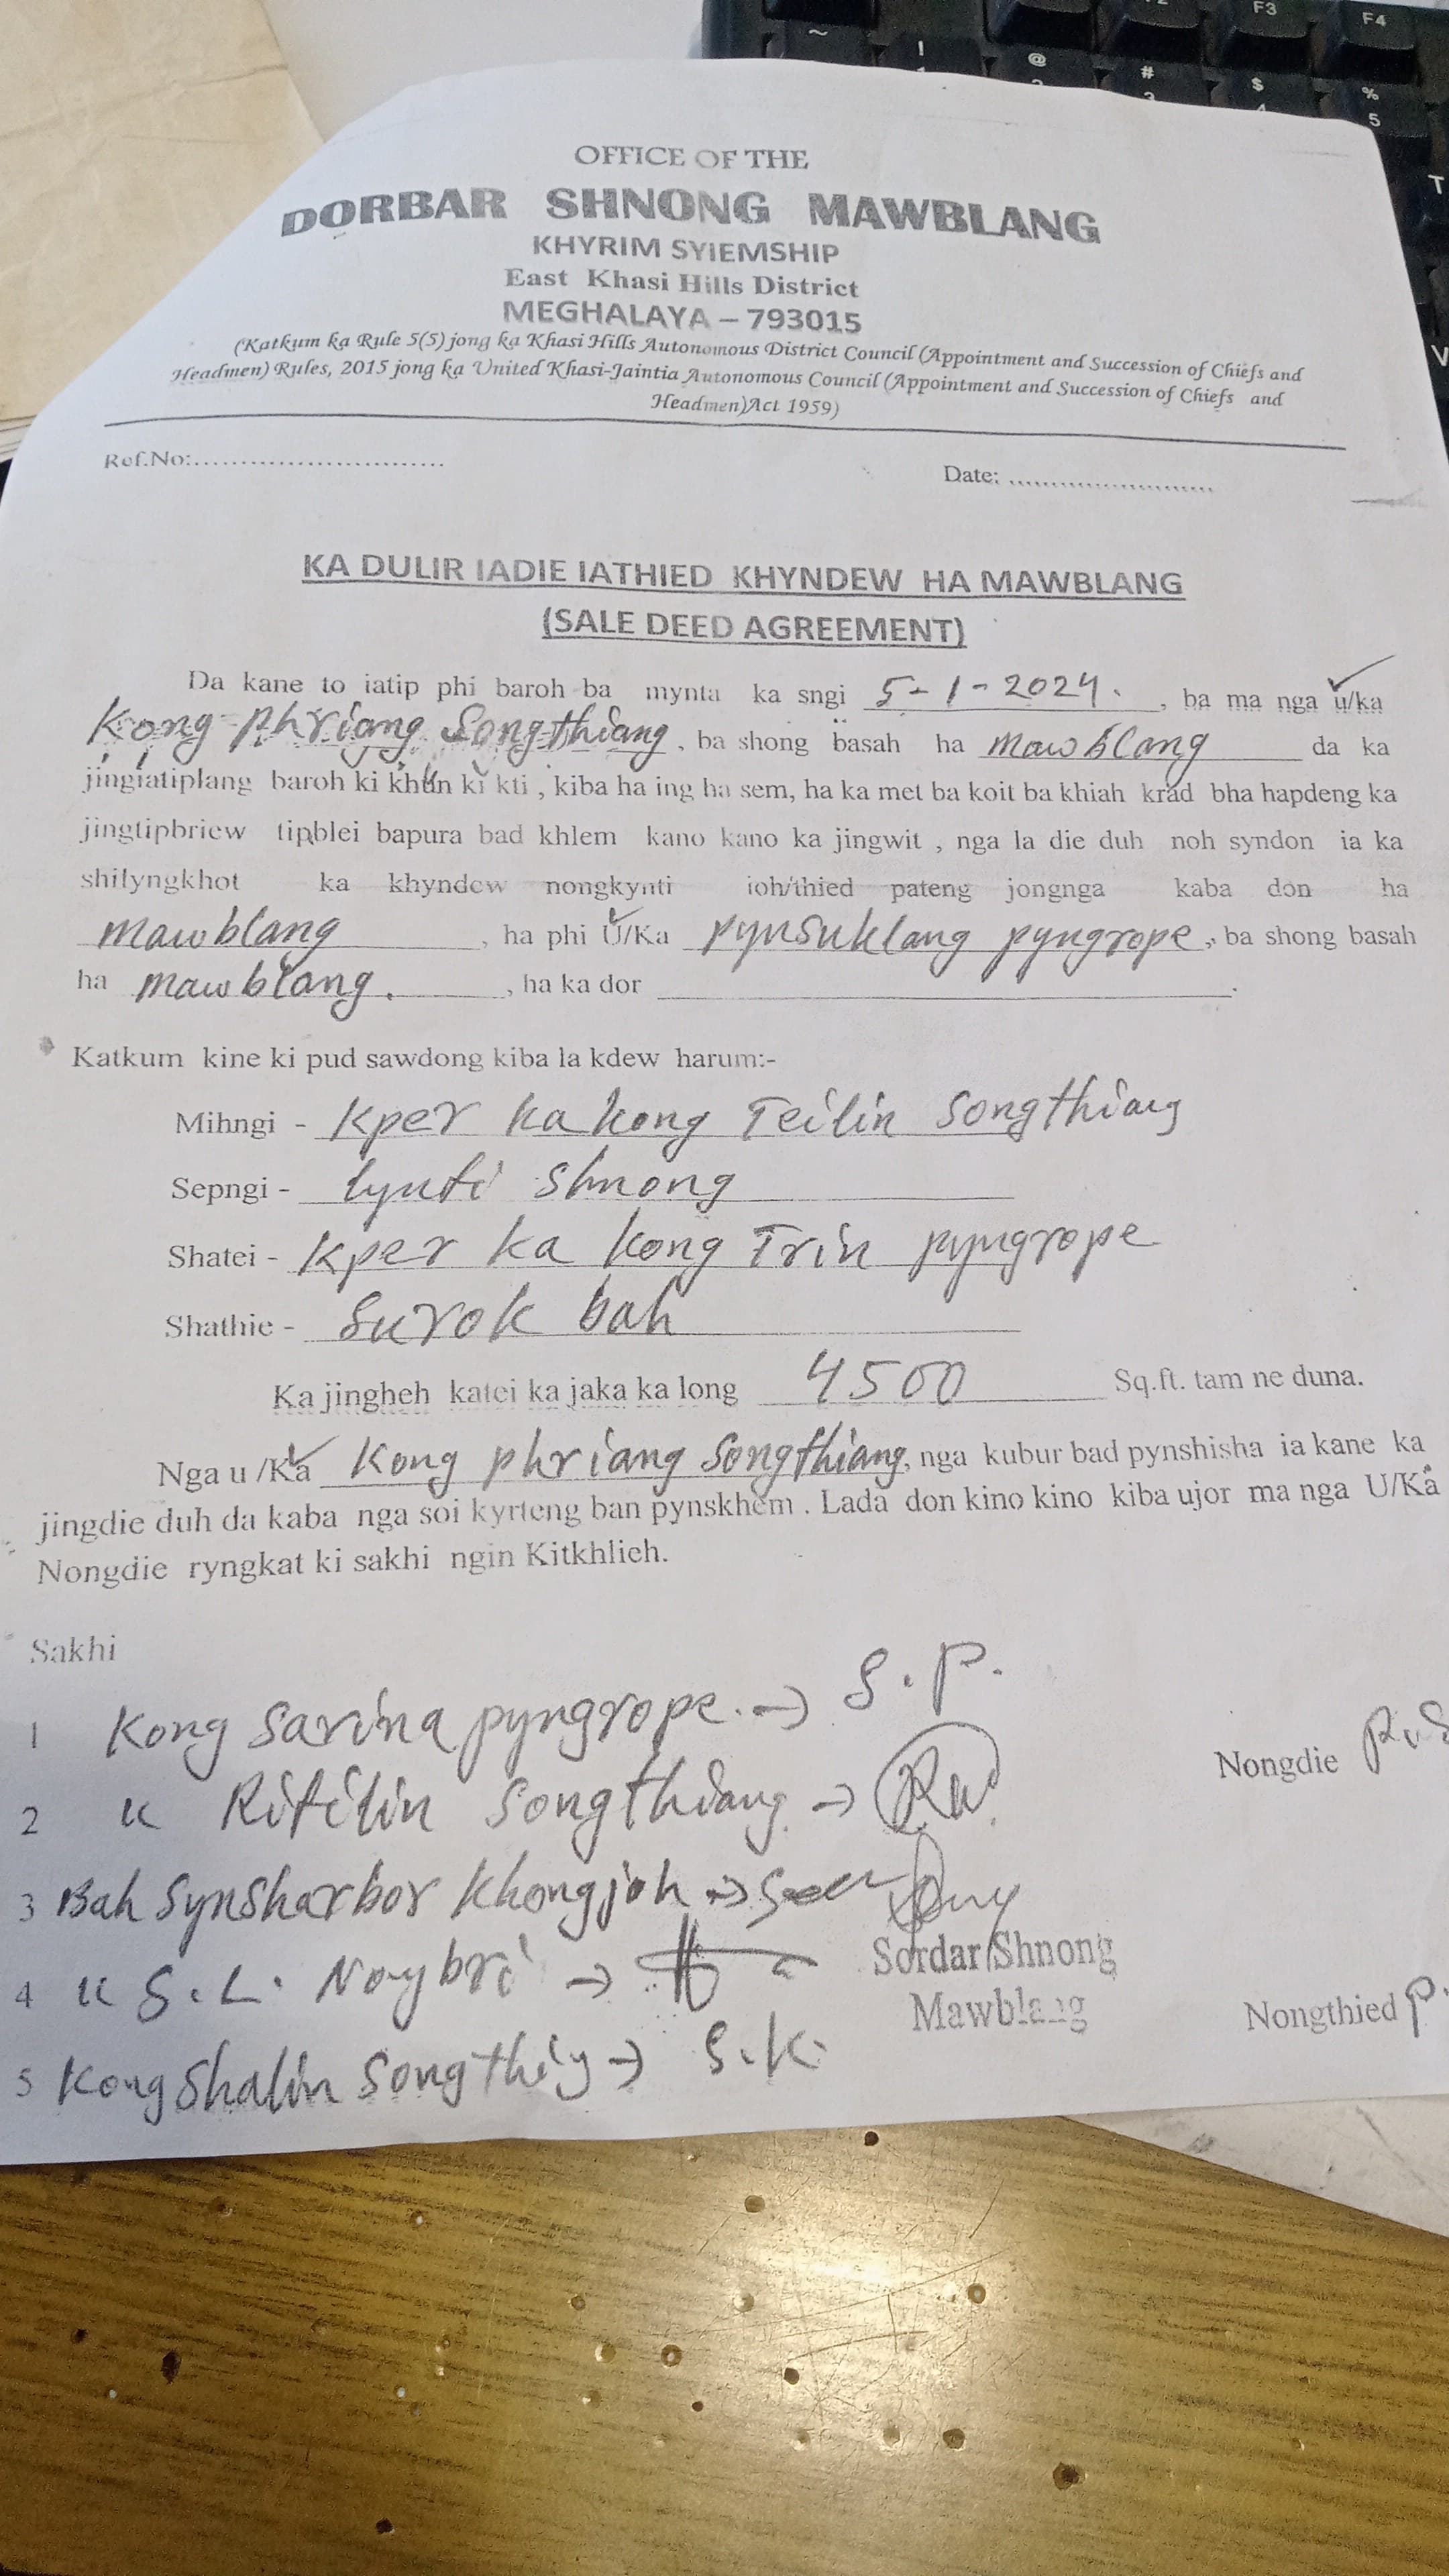 OFFICE OF THE
DORBAR SHNONG MAWBLANG
KHYRIM SYIEMSHIP
East Khasi Hills District
MEGHALAYA – 793015
(Katkum ka Rule 5(5) jong ka Khasi Hills Autonomous District Council (Appointment and Succession of Chiefs and
Headmen) Rules, 2015 jong ka United Khasi-Jaintia Autonomous Council (Appointment and Succession of Chiefs and
Headmen)Act 1959)
Ref.No:............................
Date: ........................
KA DULIR IADIE IATHIED KHYNDEW HA MAWBLANG
(SALE DEED AGREEMENT)
Da kane to iatip phi baroh ba mynta ka sngi 5-1-2024. , ba ma nga u/ka
Kong Phriang Songthiang, ba shong basah ha mawblang da ka
jingiatiplang baroh ki khun ki kti , kiba ha ing ha sem, ha ka met ba koit ba khiah krad bha hapdeng ka
jingtipbriew tipblei bapura bad khlem kano kano ka jingwit , nga la die duh noh syndon ia ka
shilyngkhot ka khyndew nongkynti ioh/thied pateng jongnga kaba don ha
mawblang , ha phi U/Ka pynsuklang pyngrope, ba shong basah
ha mawblang. , ha ka dor .
Katkum kine ki pud sawdong kiba la kdew harum:-
Mihngi - Kper ka kong Teilin Songthiang
Sepngi - lynti shnong
Shatei - Kper ka kong Trin pyngrope
Shathie - Surok bah
Ka jingheh katei ka jaka ka long 4500 Sq.ft. tam ne duna.
Nga u /Ka Kong phriang Songthiang, nga kubur bad pynshisha ia kane ka
jingdie duh da kaba nga soi kyrteng ban pynskhem . Lada don kino kino kiba ujor ma nga U/Ka
Nongdie ryngkat ki sakhi ngin Kitkhlieh.
Sakhi
1 Kong Sarina pyngrope. → S.P.
Nongdie
2 u Ritilin Songthiang →
3 Bah Synsharbor Khongjoh →
4 u S.L. Nongbri →
Sordar Shnong
Mawblang
Nongthied P.
5 Kong Shalin Songthiy → S.K.